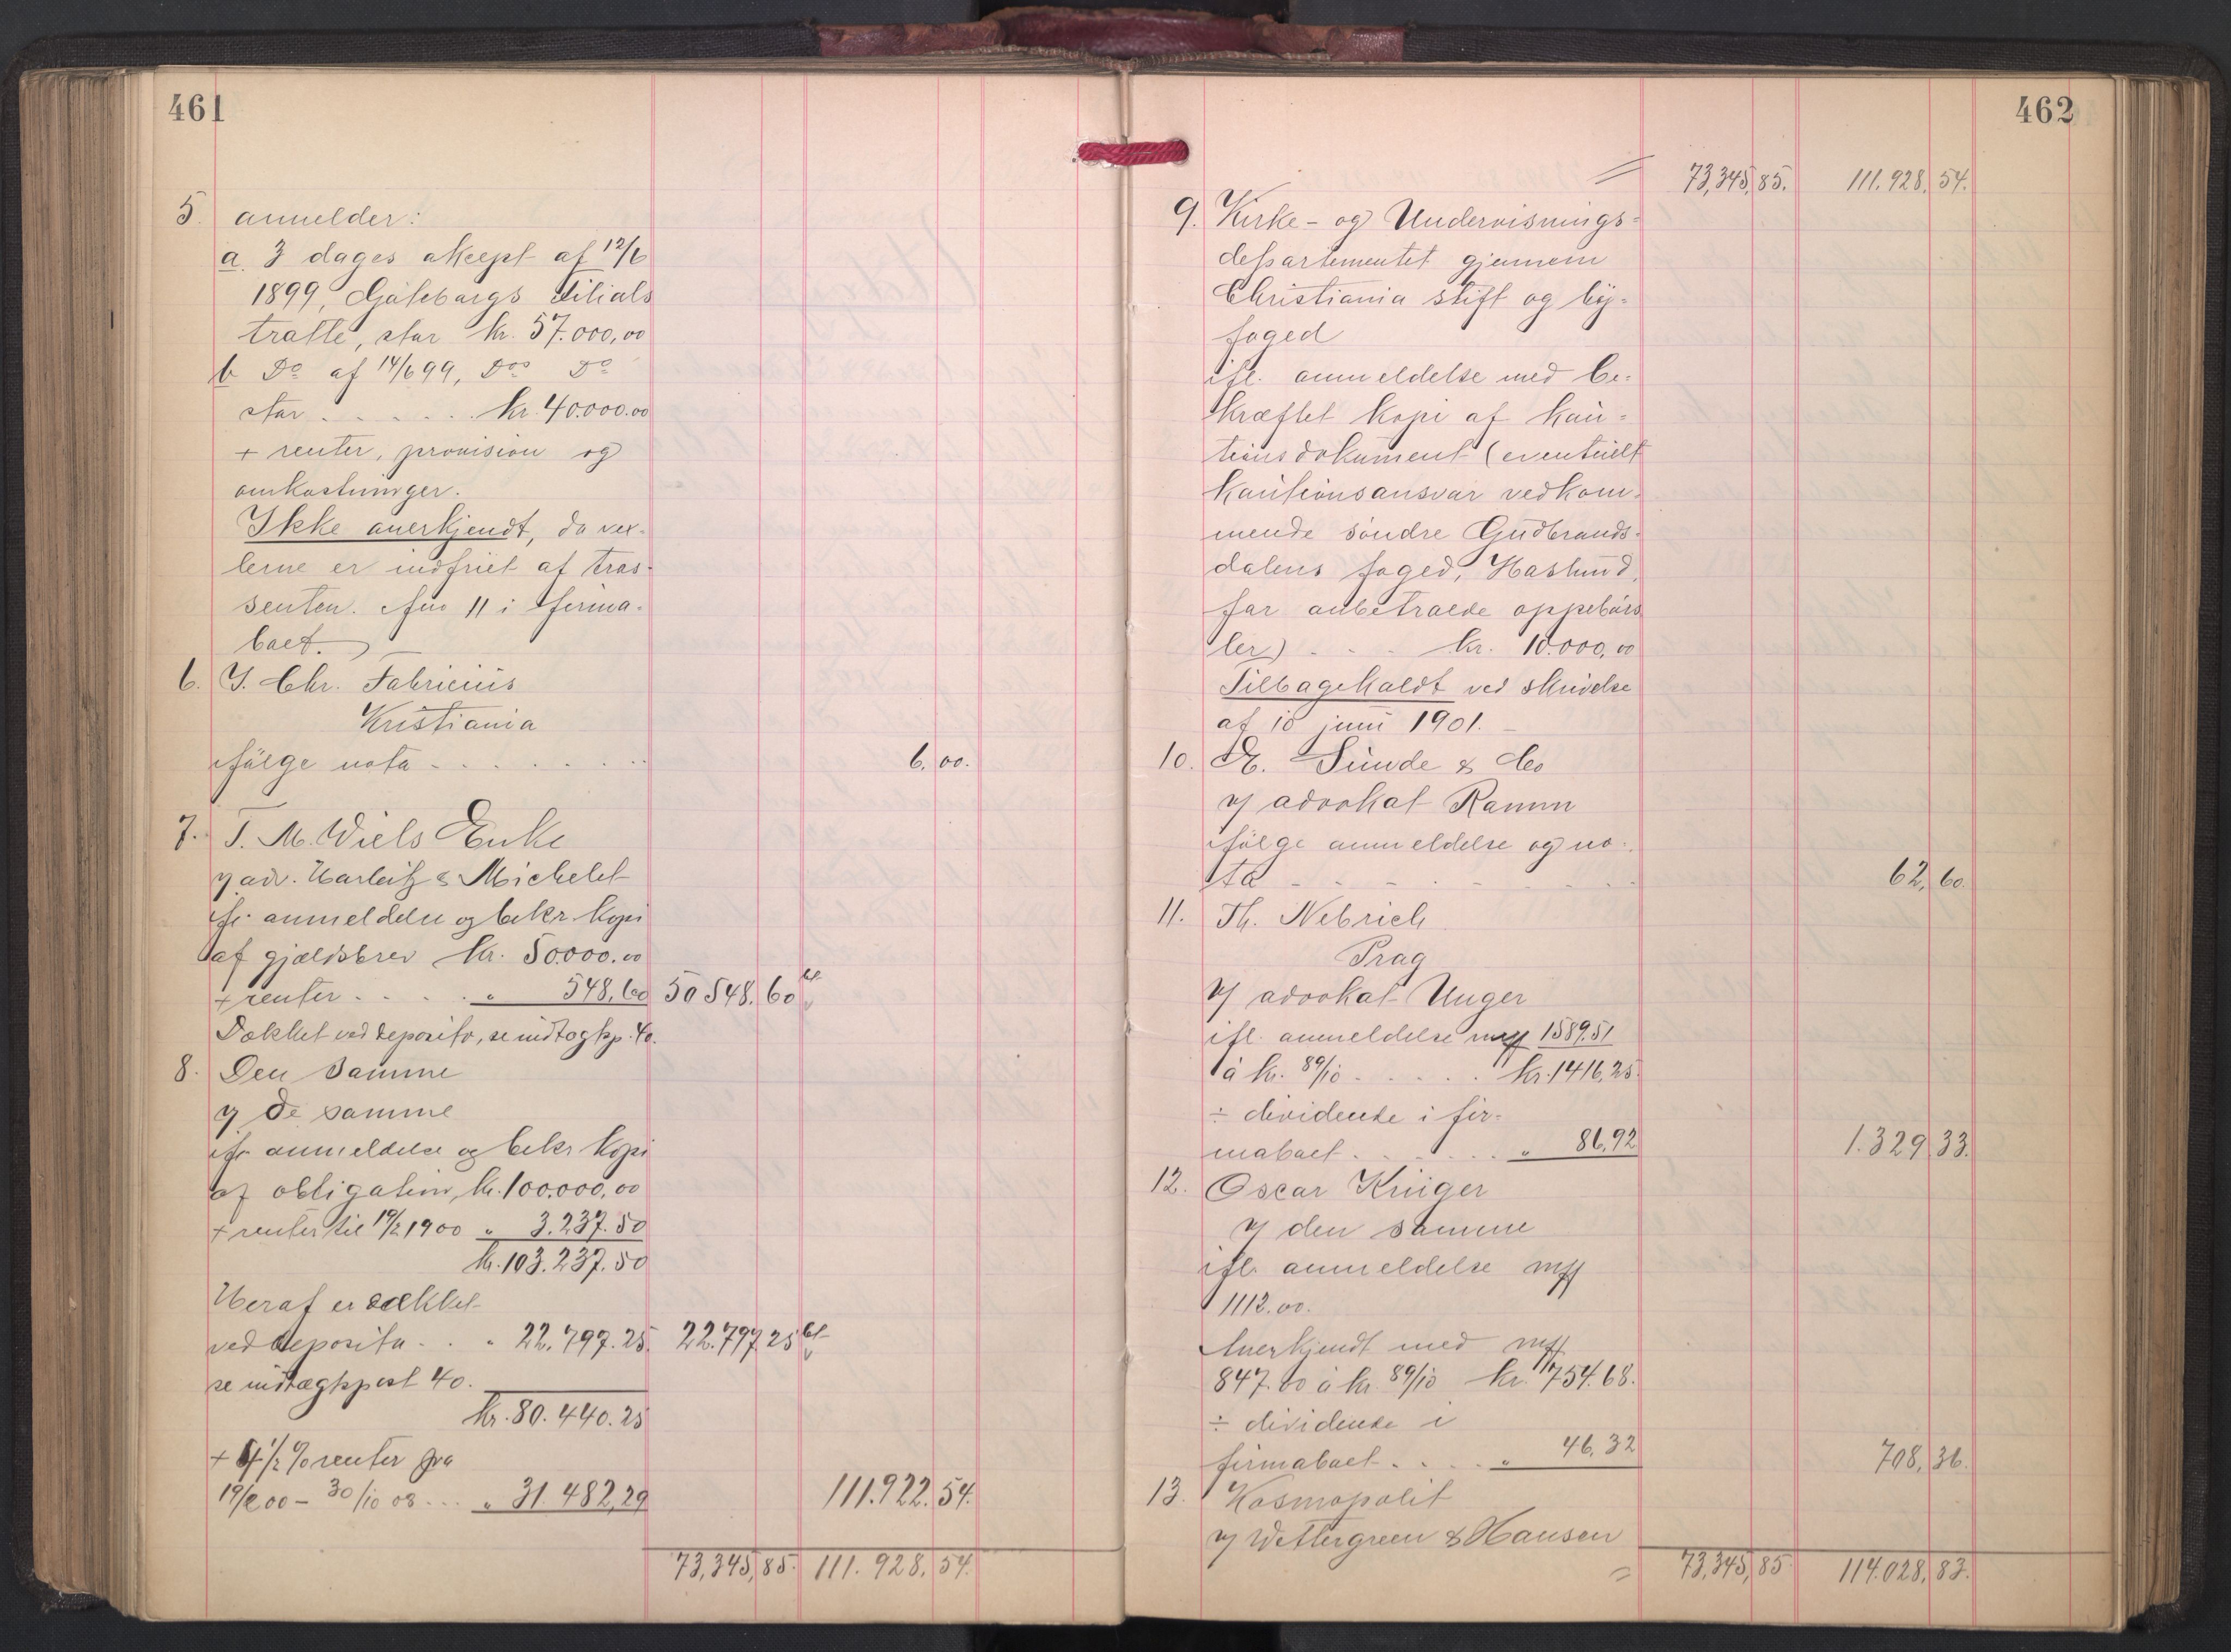 461
5. anmelder:
a. 3 dages akcept af 12/6
1899, Göteborgs Filials
tratte, stor kr. 57.000,00
b Do af 14/6 99, Dos Do
stor . . . . . . kr. 40.000.00
+ renter, provision og
omkostninger.
Ikke anerkjendt, da vex-
lerne er indfriet af tras-
senten. Anm 11 i firma-
boet.
6. J. Chr. Fabricius
Kristiania
ifölge nota . . . . . . . 6,00.
7. T. M. Wiels Enke
v/ adv. Harbitz & Michelet
ifl. anmeldelse og bekr. kopi
af gjældsbrev kr. 50.000.00
+ renter . . . . . " 548,60 50 548.60 bet
Dækket ved deposita, se indtægtsp. 40.
8. Den samme
v/ de samme
ifl. anmeldelse og bekr kopi
af obligation, kr. 100.000,00
+ renter til 19/2 1900 " 3.237.50
kr. 103.237.50
Heraf er dækket
ved deposita . . " 22.797.25. 22.797 25 bet
se indtægtspost 40.
kr. 80.440.25
+ 4 1/2 % renter fra
19/2 00 - 30/10 08 . . . " 31.482,29 111.922.54.
73,345,85. 111.928,54.
462
73,345,85. 111.928,54.
9. Kirke- og Undervisnings-
departementet gjennem
Christiania stift og by-
foged
ifl. anmeldelse med be-
kræftet kopi af kau-
tionsdokument (eventuelt
kautionsansvar vedkom-
mende söndre Gudbrands-
dalens foged, Haslund,
for anbetroede oppebörs
ler) . . . kr. 10.000,00
Tilbagekaldt ved skrivelse
af 18 juni 1901.
10. E. Sunde & Co
v/ advokat Ramm
ifölge anmeldelse og no-
ta . . . . . . . . . 62,60.
11. Th. Nebrich
Prag
v/ advokat Unger
ifl. anmeldelse mrk 1589.51
à kr. 89/10 . . . . . kr. 1416,25.
÷ dividende i fir-
maboet . . . . . . " 86,92 1.329 33.
12. Oscar Krüger
v/ den samme
ifl. anmeldelse mrk
1112.00.
Anerkjendt med mrk
847.00 à kr. 89/10 kr. 754.68.
÷ dividende i
firmaboet . . . . " 46,32 708,36.
13. Kosmopolit
v/ Wettergreen & Hansen
73,345,85. 114.028,83.